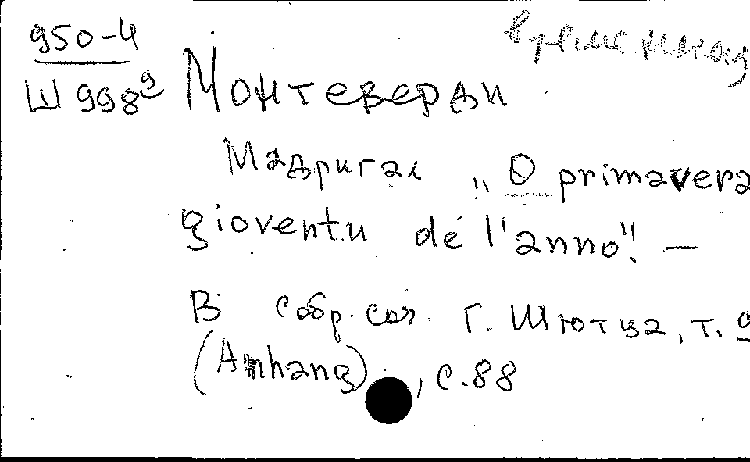 950-4
временная
Ш 998⁹ Монтеверди
Мадригал „O primavera
gioventu de l'anno". —
В собр. соч. Г. Шютца, т. 9
(Anhang), с. 88